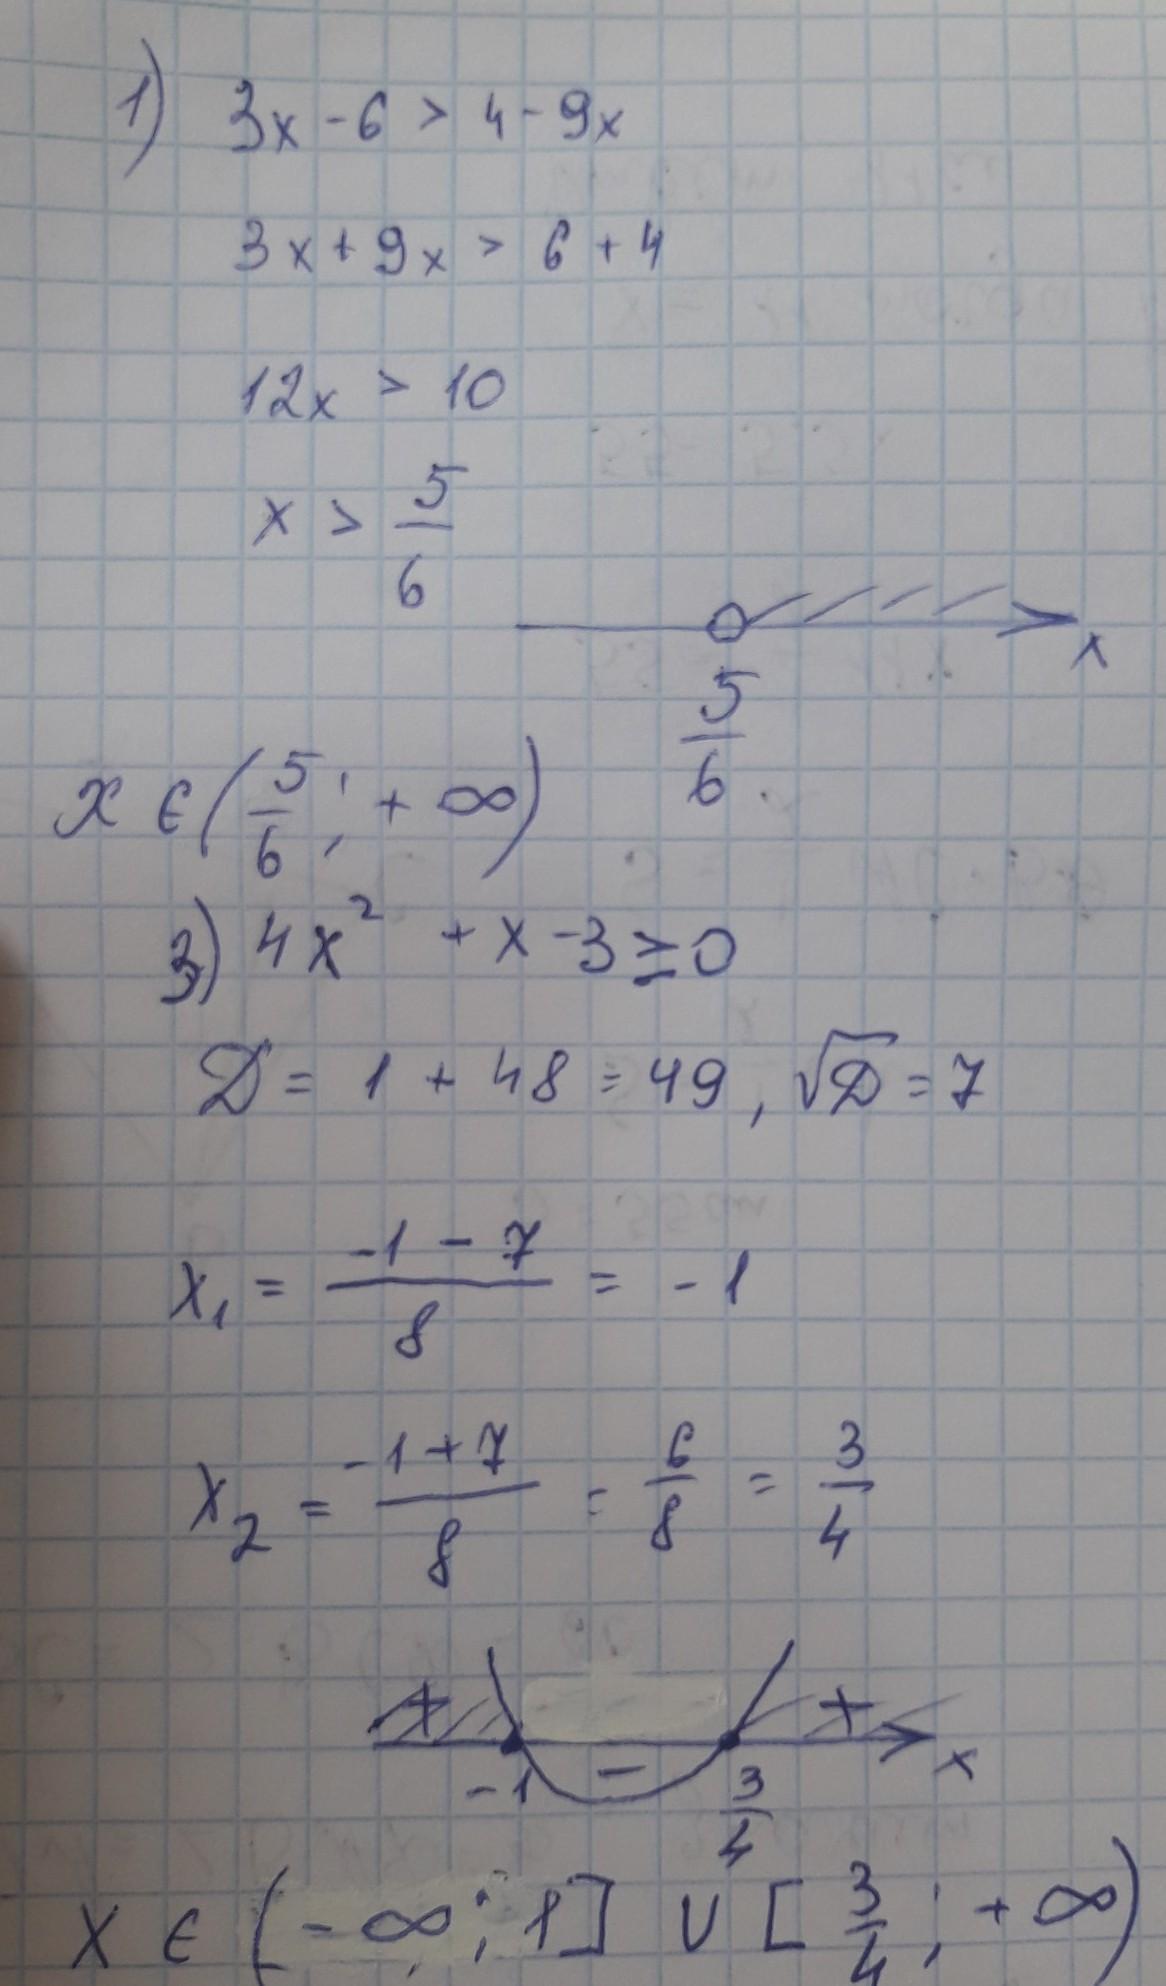 1) 3x - 6 > 4 - 9x
3x + 9x > 6 + 4
12x > 10
x > 5/6
x
5/6
x ∈ (5/6; + ∞)
3) 4x² + x - 3 ≥ 0
D = 1 + 48 = 49, √D = 7
x₁ = (-1 - 7)/8 = -1
x₂ = (-1 + 7)/8 = 6/8 = 3/4
+ - + x
-1 3/4
x ∈ (-∞; 1] ∪ [3/4; + ∞)